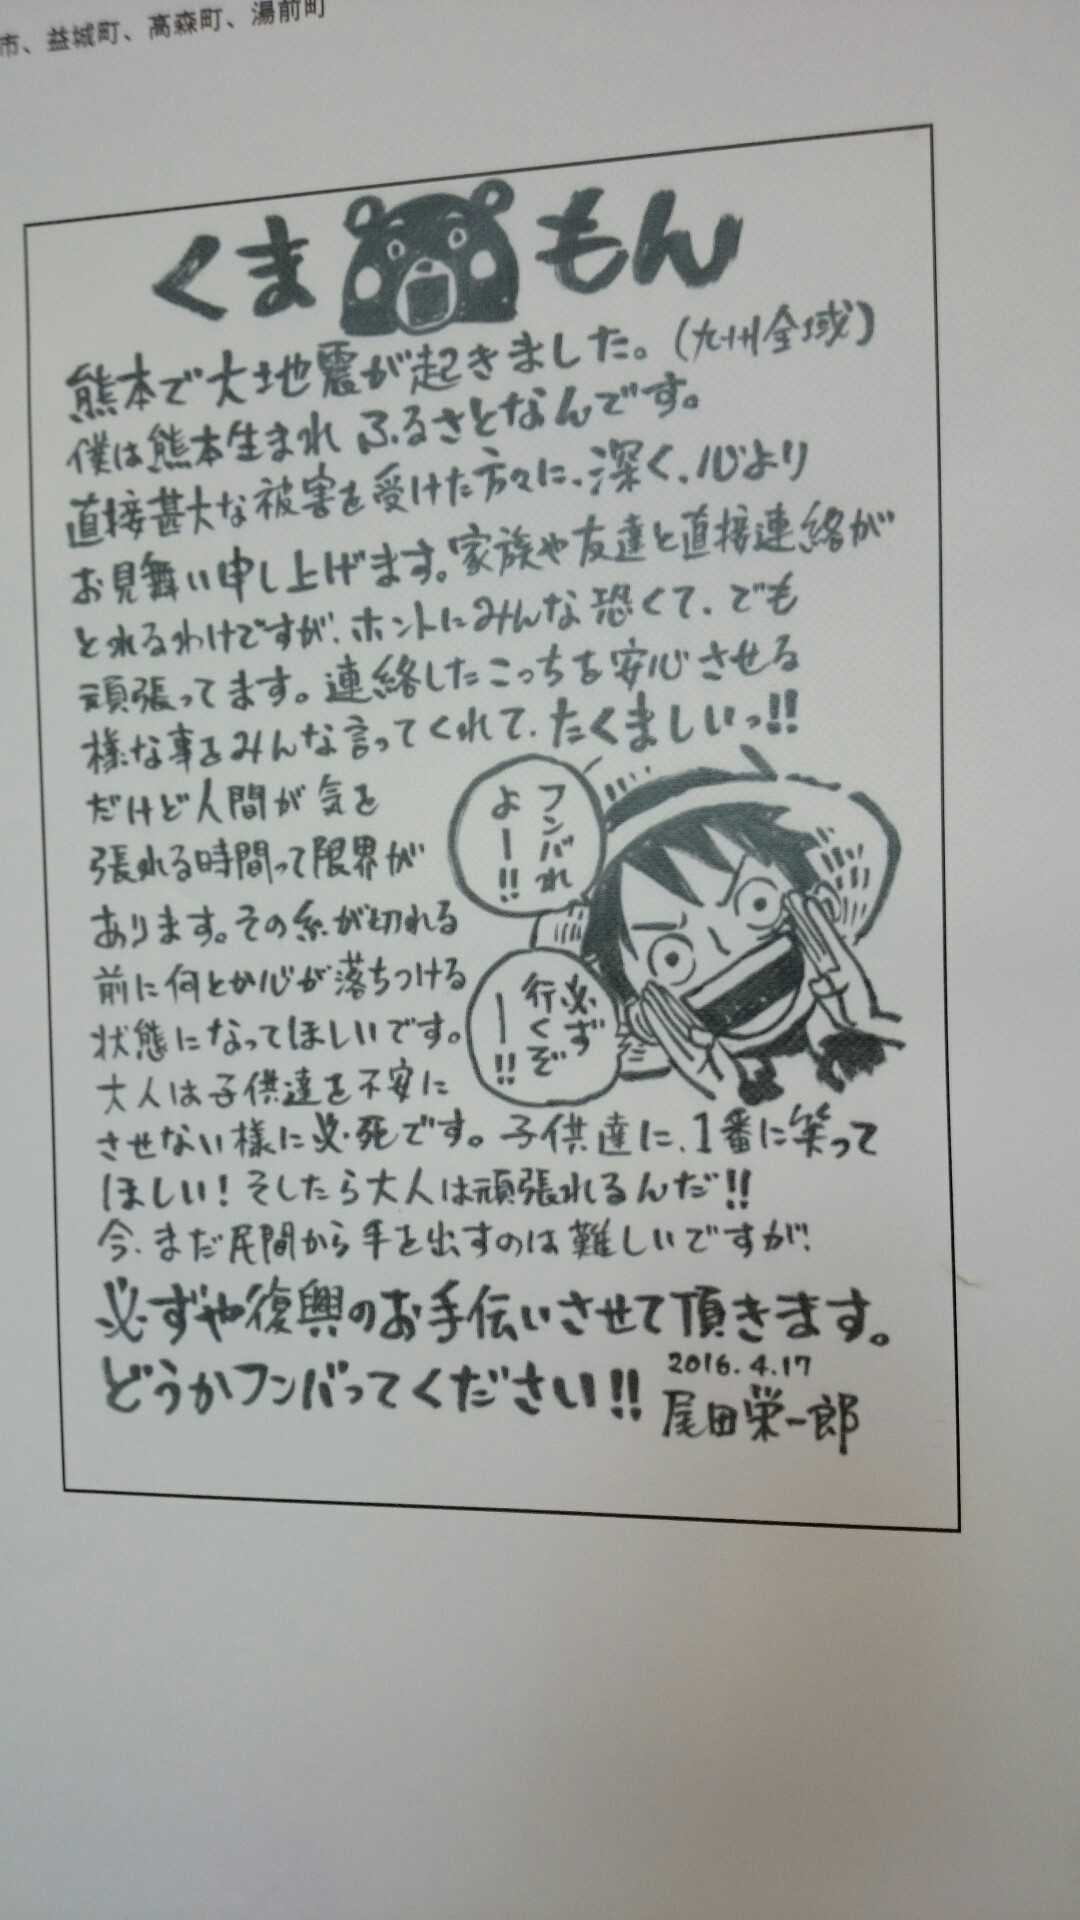 市、益城町、高森町、湯前町
くま もん
熊本で大地震が起きました。(九州全域)
僕は熊本生まれ ふるさとなんです。
直接甚大な被害を受けた方々に、深く、心より
お見舞い申し上げます。家族や友達と直接連絡が
とれるわけですが、ホントにみんな恐くて、でも
頑張ってます。連絡したこっちを安心させる
様な事をみんな言ってくれて、たくましいっ!!
だけど人間が気を
張れる時間って限界が
あります。その糸が切れる
前に何とか心が落ちつける
状態になってほしいです。
大人は子供達を不安に
させない様に必死です。子供達に、1番に笑って
ほしい!そしたら大人は頑張れるんだ!!
今、まだ民間から手を出すのは難しいですが、
必ずや復興のお手伝いさせて頂きます。
どうかフンバってください!!
2016.4.17
尾田栄一郎
フンバれ
よー!!
必ず
行くぞ
ー!!